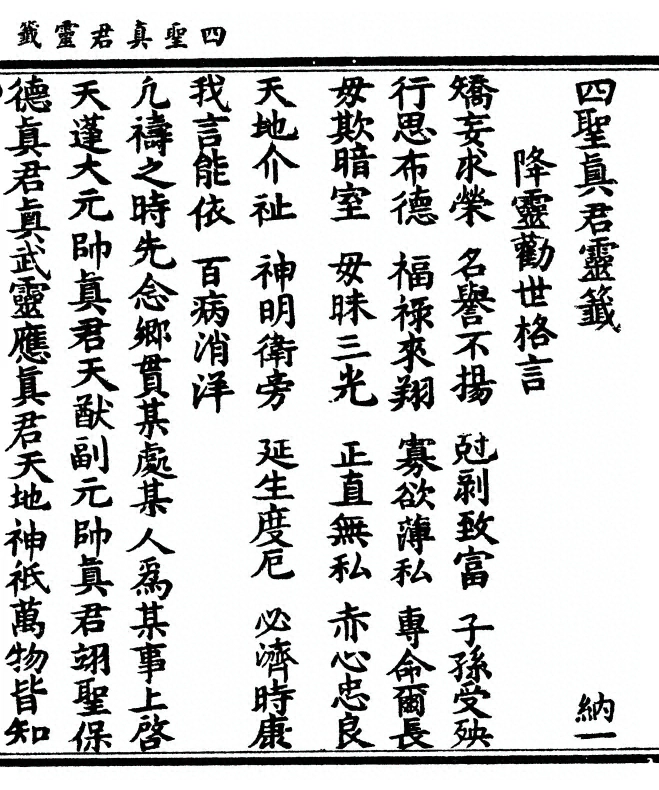 四聖真君靈籤
四聖眞君靈籤 納一
降靈勸世格言
矯妄求榮 名譽不揚 尅剥致富 子孫受殃
行思布德 福祿來翔 寡欲薄私 專命爾長
毋欺暗室 毋昧三光 正直無私 赤心忠良
天地介祉 神明衛旁 延生度厄 必濟時康
我言能依 百病消洋
凢禱之時先念鄉貫某處某人爲某事上啓
天蓬大元帥眞君天猷副元帥眞君翊聖保
德眞君眞武靈應眞君天地神祇萬物皆知